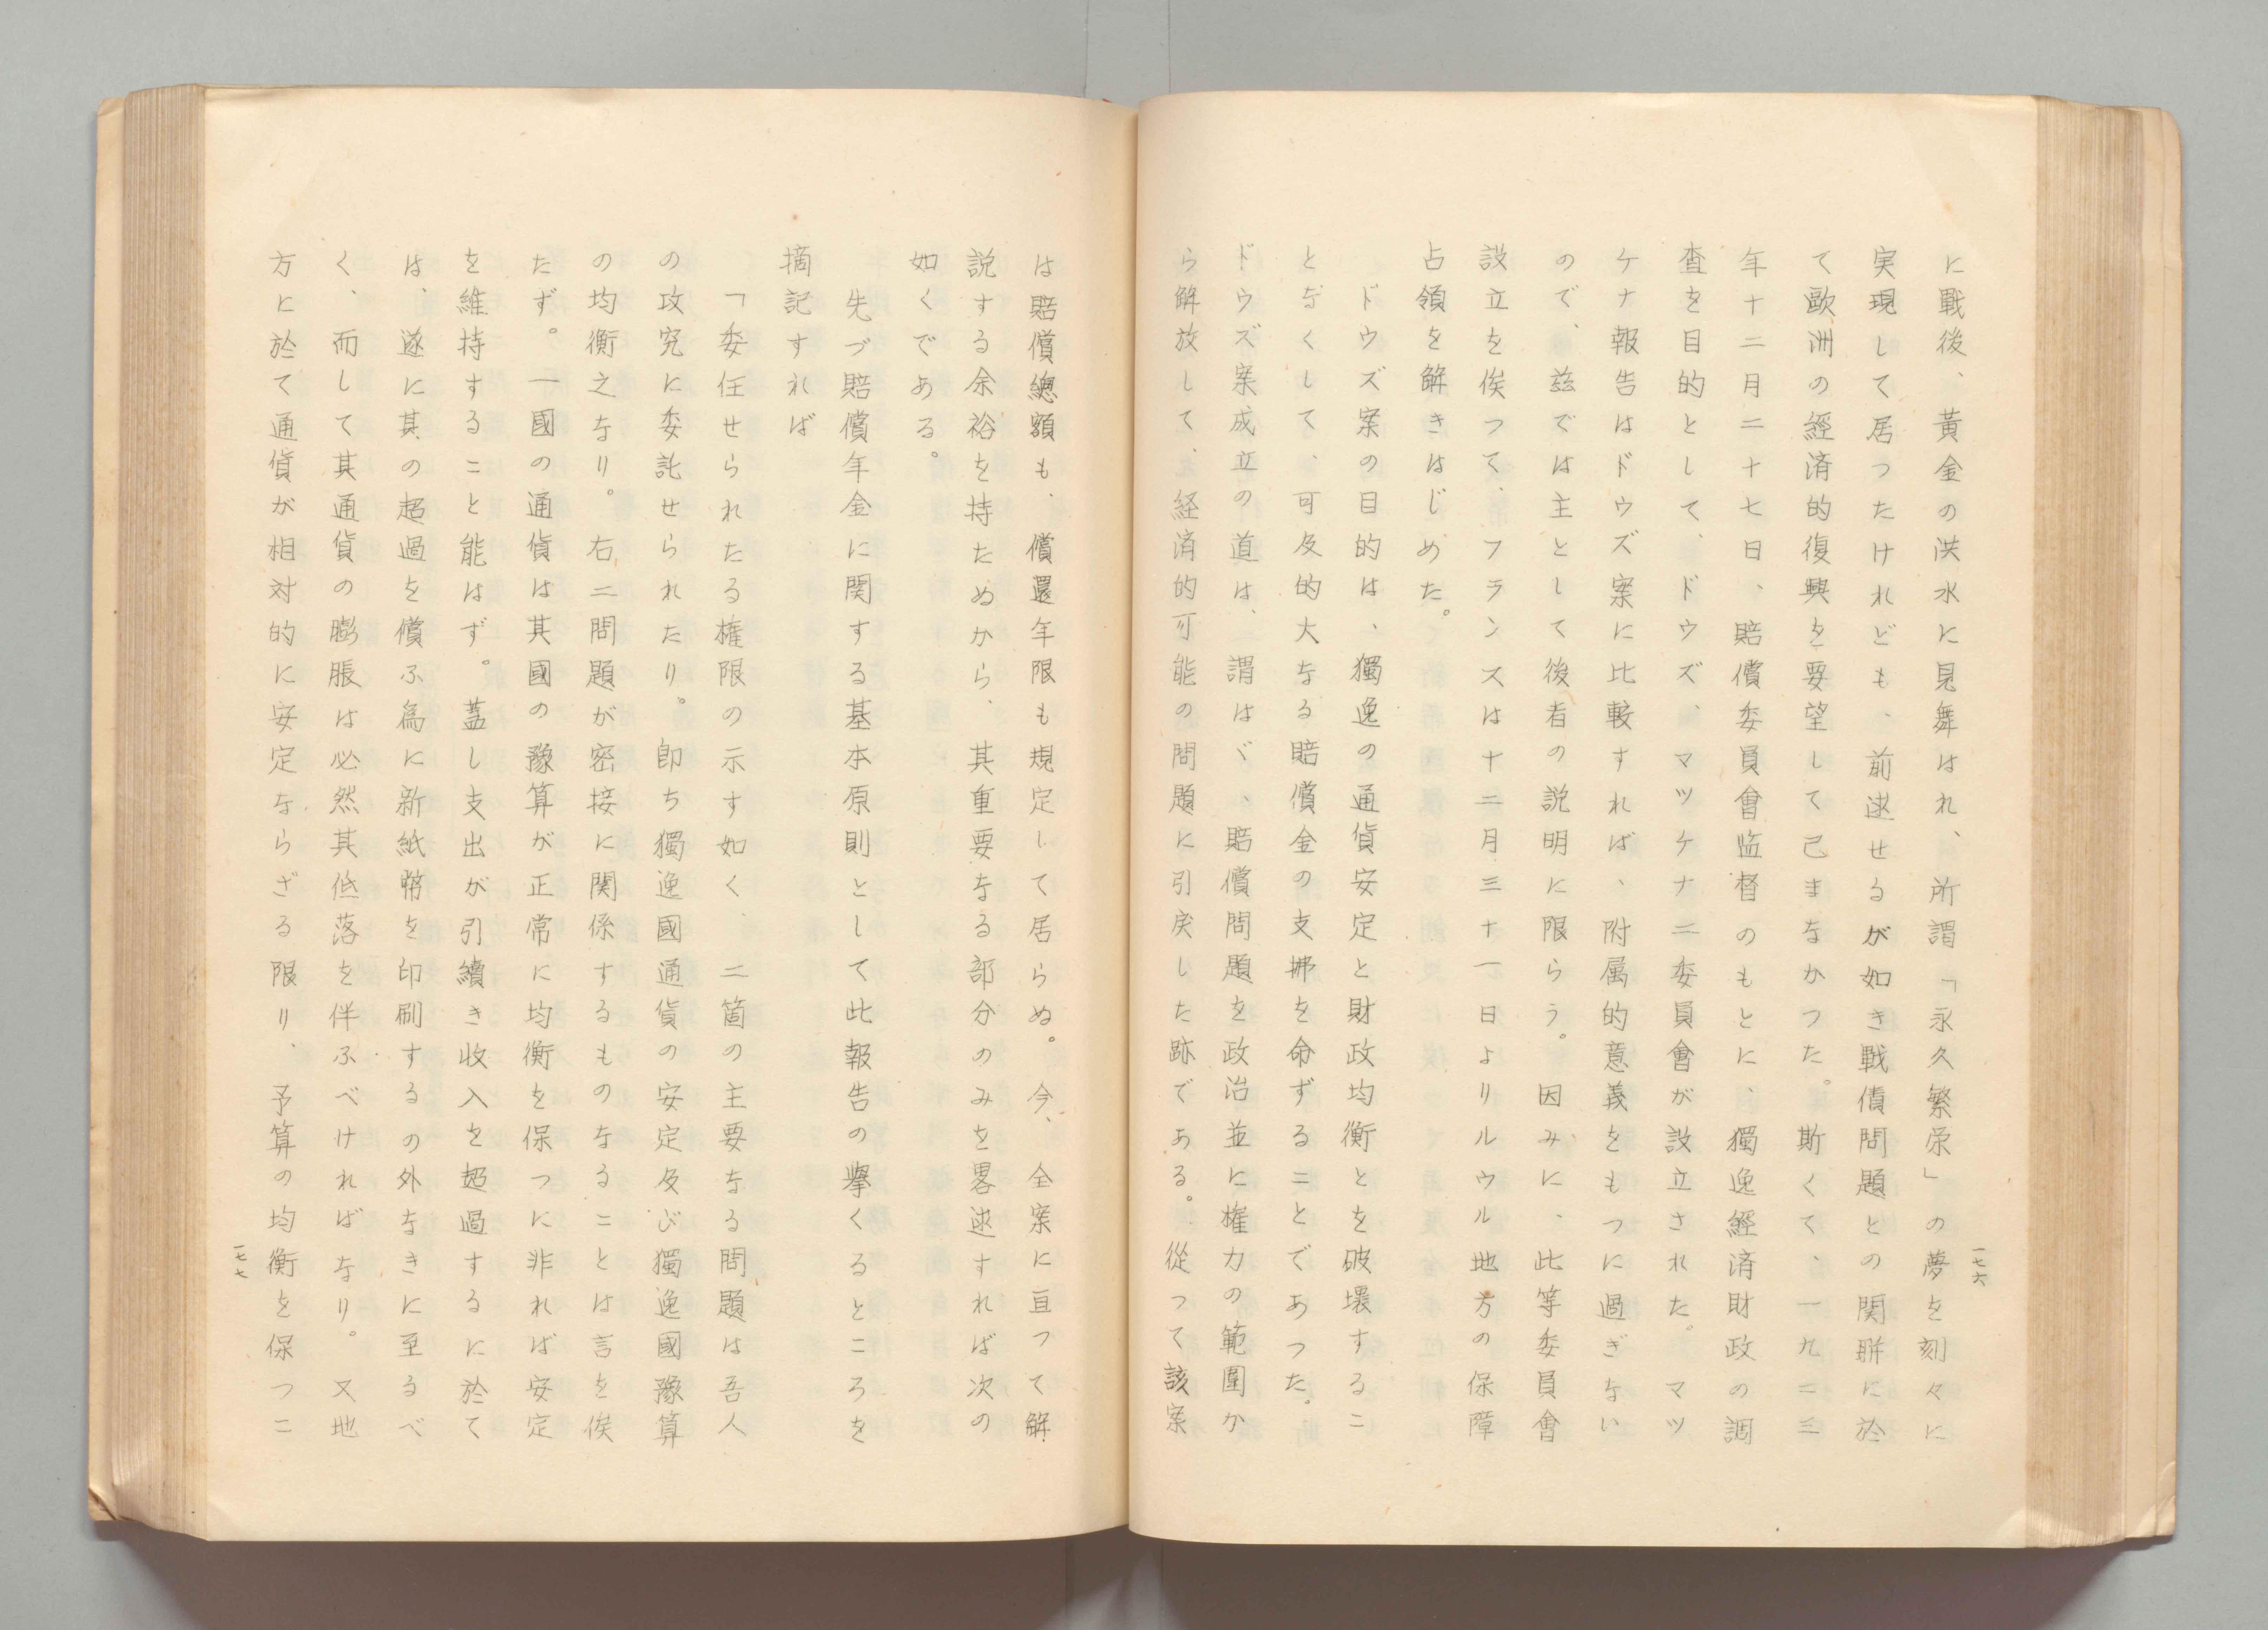 一七六
に戰後、黃金の洪水に見舞はれ、所謂「永久繁栄」の夢を刻々に
実現して居つたけれども、前述せるが如き戰債問題との関聯に於
て歐洲の經済的復興を要望して已まなかつた。斯くて、一九二三
年十二月二十七日、賠償委員會监督のもとに、獨逸經済財政の調
査を目的として、ドウズ、マツケナ二委員會が設立された。マツ
ケナ報告はドウズ案に比較すれば、附属的意義をもつに過ぎない
ので、茲では主として後者の説明に限らう。因みに、此等委員會
設立を俟つて、フランスは十二月三十一日よりルウル地方の保障
占領を解きはじめた。
ドウズ案の目的は、獨逸の通貨安定と財政均衡とを破壞するこ
となくして、可及的大なる賠償金の支拂を命ずることであつた。
ドウズ案成立の道は、謂はゞ、賠償問題を政治並に権力の範圍か
ら解放して、経済的可能の問題に引戻した跡である。從つて該案
は賠償總額も、償還年限も規定して居らぬ。今、全案に亘つて解
説する余裕を持たぬから、其重要なる部分のみを畧述すれば次の
如くである。
先づ賠償年金に関する基本原則として此報告の擧くるところを
摘記すれば
「委任せられたる権限の示す如く、二箇の主要なる問題は吾人
の攻究に委託せられたり。卽ち獨逸國通貨の安定及び獨逸國豫算
の均衡之なり。右二問題が密接に関係するものなることは言を俟
たず。一國の通貨は其國の豫算が正常に均衡を保つに非れば安定
を維持すること能はず。蓋し支出が引續き收入を超過するに於て
は、遂に其の超過を償ふ爲に新紙幣を印刷するの外なきに至るべ
く、而して其通貨の膨脹は必然其低落を伴ふべければなり。又地
方に於て通貨が相対的に安定ならざる限り、予算の均衡を保つこ
一七七